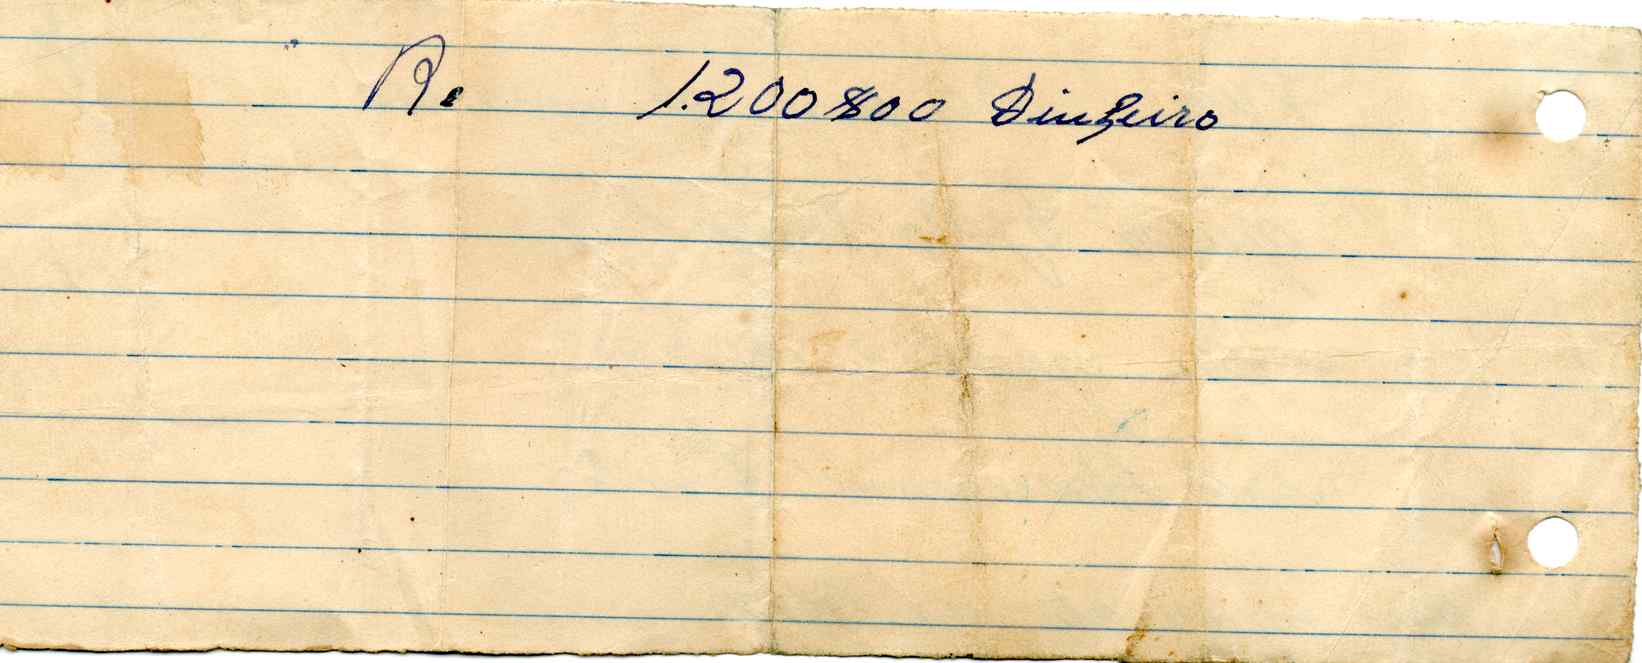 R. 1.200$00 Dinheiro